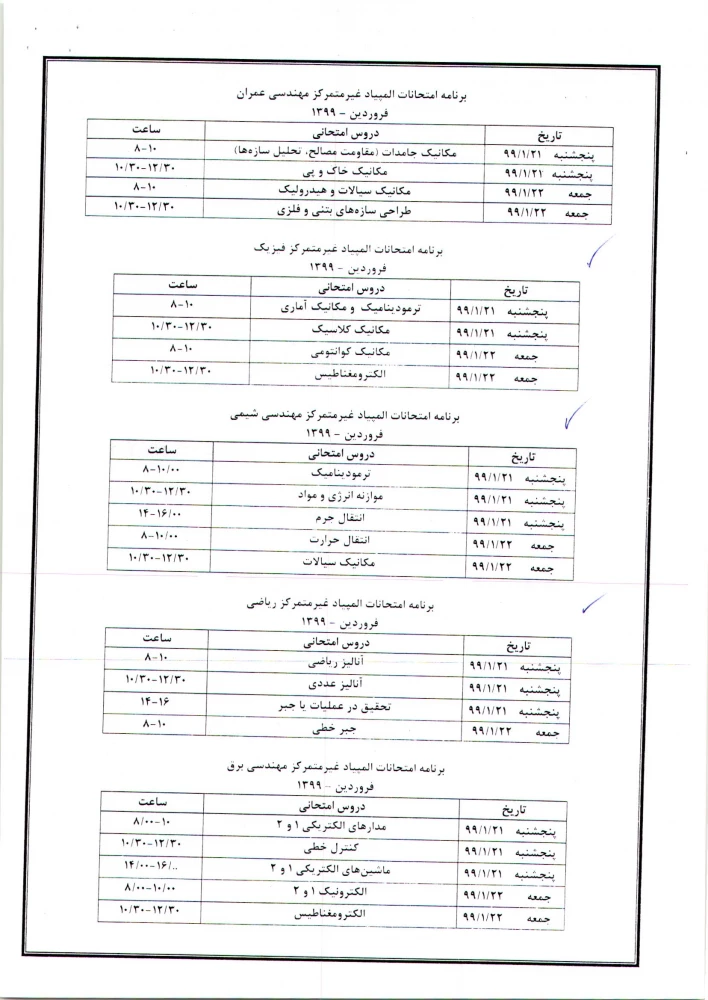 برنامه امتحانات المپیاد غیرمتمرکز مهندسی عمران
فروردین - ۱۳۹۹
تاریخ دروس امتحانی ساعت
پنجشنبه ۹۹/۱/۲۱ مکانیک جامدات (مقاومت مصالح، تحلیل سازه‌ها) ۸-۱۰
پنجشنبه ۹۹/۱/۲۱ مکانیک خاک و پی ۱۰/۳۰-۱۲/۳۰
جمعه ۹۹/۱/۲۲ مکانیک سیالات و هیدرولیک ۸-۱۰
جمعه ۹۹/۱/۲۲ طراحی سازه‌های بتنی و فلزی ۱۰/۳۰-۱۲/۳۰
برنامه امتحانات المپیاد غیرمتمرکز فیزیک
فروردین - ۱۳۹۹
تاریخ دروس امتحانی ساعت
پنجشنبه ۹۹/۱/۲۱ ترمودینامیک و مکانیک آماری ۸-۱۰
پنجشنبه ۹۹/۱/۲۱ مکانیک کلاسیک ۱۰/۳۰-۱۲/۳۰
جمعه ۹۹/۱/۲۲ مکانیک کوانتومی ۸-۱۰
جمعه ۹۹/۱/۲۲ الکترومغناطیس ۱۰/۳۰-۱۲/۳۰
برنامه امتحانات المپیاد غیرمتمرکز مهندسی شیمی
فروردین - ۱۳۹۹
تاریخ دروس امتحانی ساعت
پنجشنبه ۹۹/۱/۲۱ ترمودینامیک ۸-۱۰/۰۰
پنجشنبه ۹۹/۱/۲۱ موازنه انرژی و مواد ۱۰/۳۰-۱۲/۳۰
پنجشنبه ۹۹/۱/۲۱ انتقال جرم ۱۴-۱۶/۰۰
جمعه ۹۹/۱/۲۲ انتقال حرارت ۸-۱۰/۰۰
جمعه ۹۹/۱/۲۲ مکانیک سیالات ۱۰/۳۰-۱۲/۳۰
برنامه امتحانات المپیاد غیرمتمرکز ریاضی
فروردین - ۱۳۹۹
تاریخ دروس امتحانی ساعت
پنجشنبه ۹۹/۱/۲۱ آنالیز ریاضی ۸-۱۰
پنجشنبه ۹۹/۱/۲۱ آنالیز عددی ۱۰/۳۰-۱۲/۳۰
پنجشنبه ۹۹/۱/۲۱ تحقیق در عملیات یا جبر ۱۴-۱۶
جمعه ۹۹/۱/۲۲ جبر خطی ۸-۱۰
برنامه امتحانات المپیاد غیرمتمرکز مهندسی برق
فروردین - ۱۳۹۹
تاریخ دروس امتحانی ساعت
پنجشنبه ۹۹/۱/۲۱ مدارهای الکتریکی ۱ و ۲ ۸/۰۰-۱۰
پنجشنبه ۹۹/۱/۲۱ کنترل خطی ۱۰/۳۰-۱۲/۳۰
پنجشنبه ۹۹/۱/۲۱ ماشین‌های الکتریکی ۱ و ۲ ۱۴/۰۰-۱۶/..
جمعه ۹۹/۱/۲۲ الکترونیک ۱ و ۲ ۸/۰۰-۱۰/۰۰
جمعه ۹۹/۱/۲۲ الکترومغناطیس ۱۰/۳۰-۱۲/۳۰